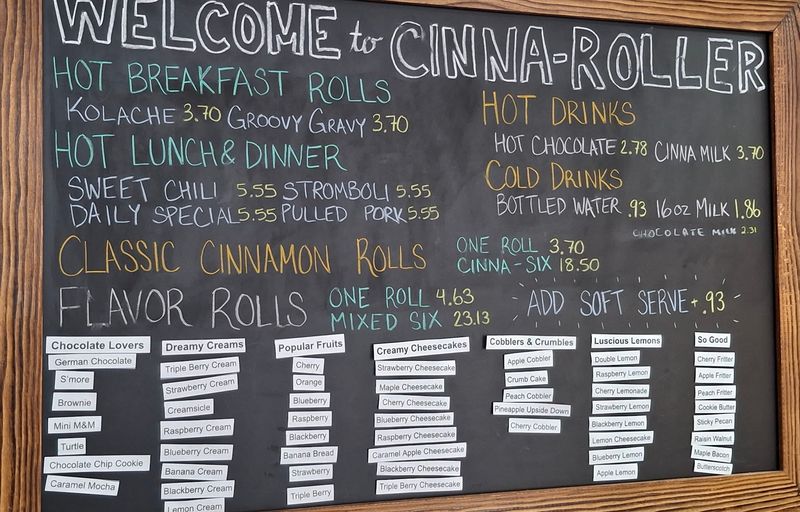 WELCOME to CINNA-ROLLER
HOT BREAKFAST ROLLS
KOLACHE 3.70 GROOVY GRAVY 3.70
HOT LUNCH & DINNER
SWEET CHILI 5.55 STROMBOLI 5.55
DAILY SPECIAL 5.55 PULLED PORK 5.55
HOT DRINKS
HOT CHOCOLATE 2.78 CINNA MILK 3.70
COLD DRINKS
BOTTLED WATER .93 16oz MILK 1.86
CHOCOLATE MILK 2.31
CLASSIC CINNAMON ROLLS
ONE ROLL 3.70
CINNA-SIX 18.50
FLAVOR ROLLS
ONE ROLL 4.63
MIXED SIX 23.13
ADD SOFT SERVE + .93
Chocolate Lovers
German Chocolate
S'more
Brownie
Mini M&M
Turtle
Chocolate Chip Cookie
Caramel Mocha
Dreamy Creams
Triple Berry Cream
Strawberry Cream
Creamsicle
Raspberry Cream
Blueberry Cream
Banana Cream
Blackberry Cream
Lemon Cream
Popular Fruits
Cherry
Orange
Blueberry
Raspberry
Blackberry
Banana Bread
Strawberry
Triple Berry
Creamy Cheesecakes
Strawberry Cheesecake
Maple Cheesecake
Cherry Cheesecake
Blueberry Cheesecake
Raspberry Cheesecake
Caramel Apple Cheesecake
Blackberry Cheesecake
Triple Berry Cheesecake
Cobblers & Crumbles
Apple Cobbler
Crumb Cake
Peach Cobbler
Pineapple Upside Down
Cherry Cobbler
Luscious Lemons
Double Lemon
Raspberry Lemon
Cherry Lemonade
Strawberry Lemon
Blackberry Lemon
Lemon Cheesecake
Blueberry Lemon
Apple Lemon
So Good
Cherry Fritter
Apple Fritter
Peach Fritter
Cookie Butter
Sticky Pecan
Raisin Walnut
Maple Bacon
Butterscotch